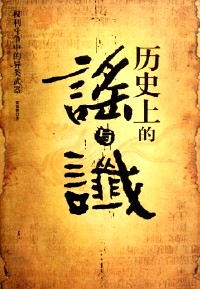 历史上的
謠与讖
权利斗争中的异类武器